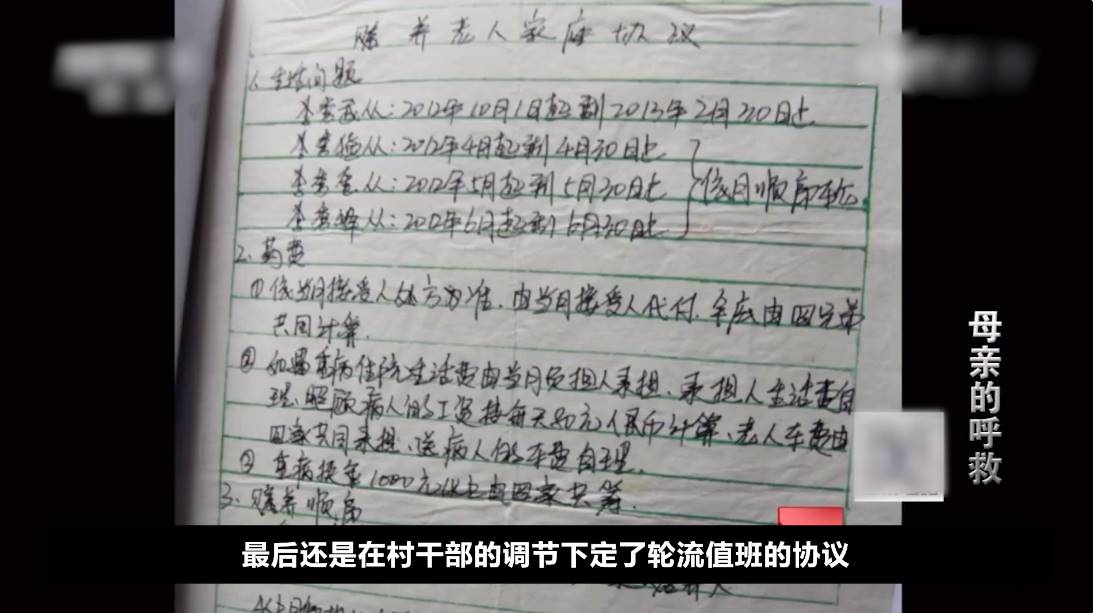 赡养老人家庭协议
1、生活问题
李 武从:2012年10月1日起到2013年2月30日止
李 从:2012年4月起到4月30日止
李 从:2012年5月起到5月30日止
依月顺序轮
李 峰从:2012年6月起到6月30日止
2、药费
①依当月接受人处方为准.由当月接受人代付.年底由四兄弟
共同计算.
②如遇重病住院生活费由当月负担人承担、承担人生活费自
理、照顾病人的工资按每天80元人民币计算、老人车费由
四家共同承担、送病人的车费自理.
③重病 1000元以上由四家共筹.
3、赡养顺序
母亲的呼救
最后还是在村干部的调节下定了轮流值班的协议